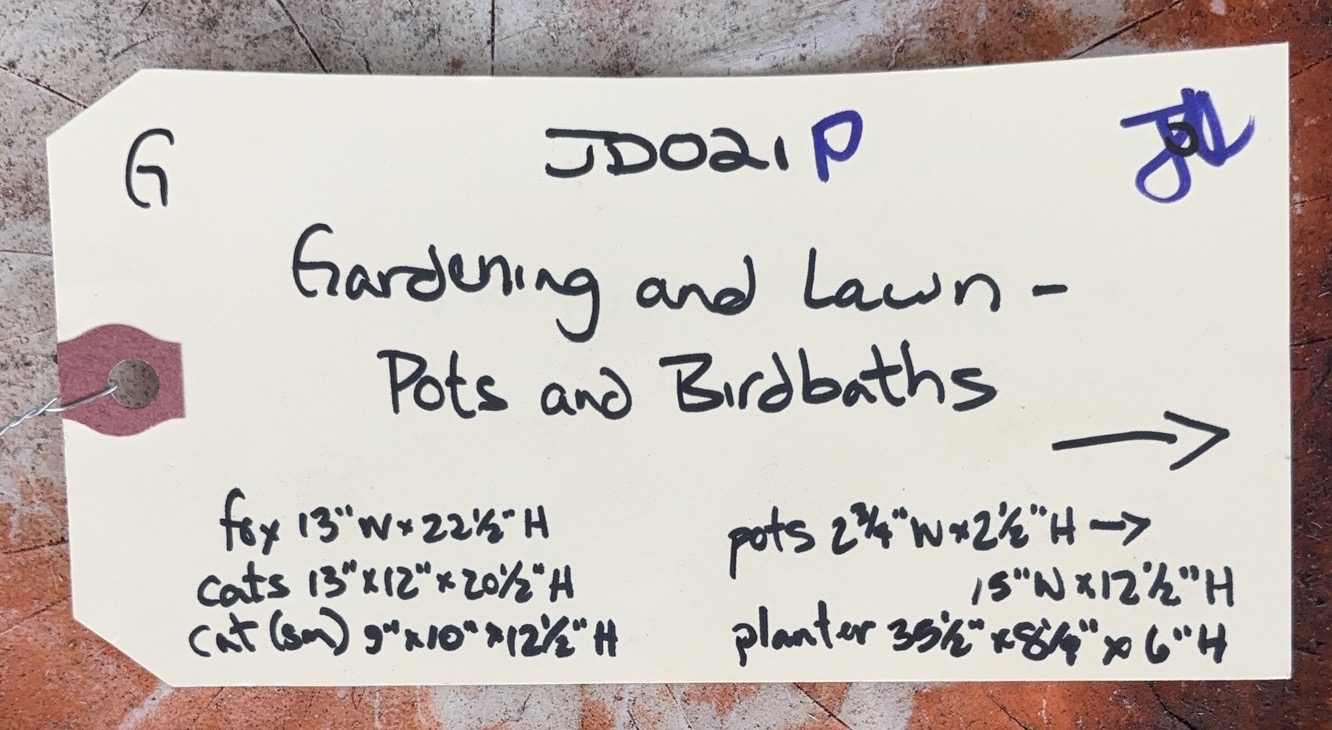 G
JD021P
Gardening and Lawn -
Pots and Birdbaths
→
fox 13"W x 22½"H
cats 13" x 12" x 20½"H
cat (sm) 9" x 10" x 12½"H
pots 2¾"W x 2½"H →
15"W x 12½"H
planter 35½" x 8¼" x 6"H